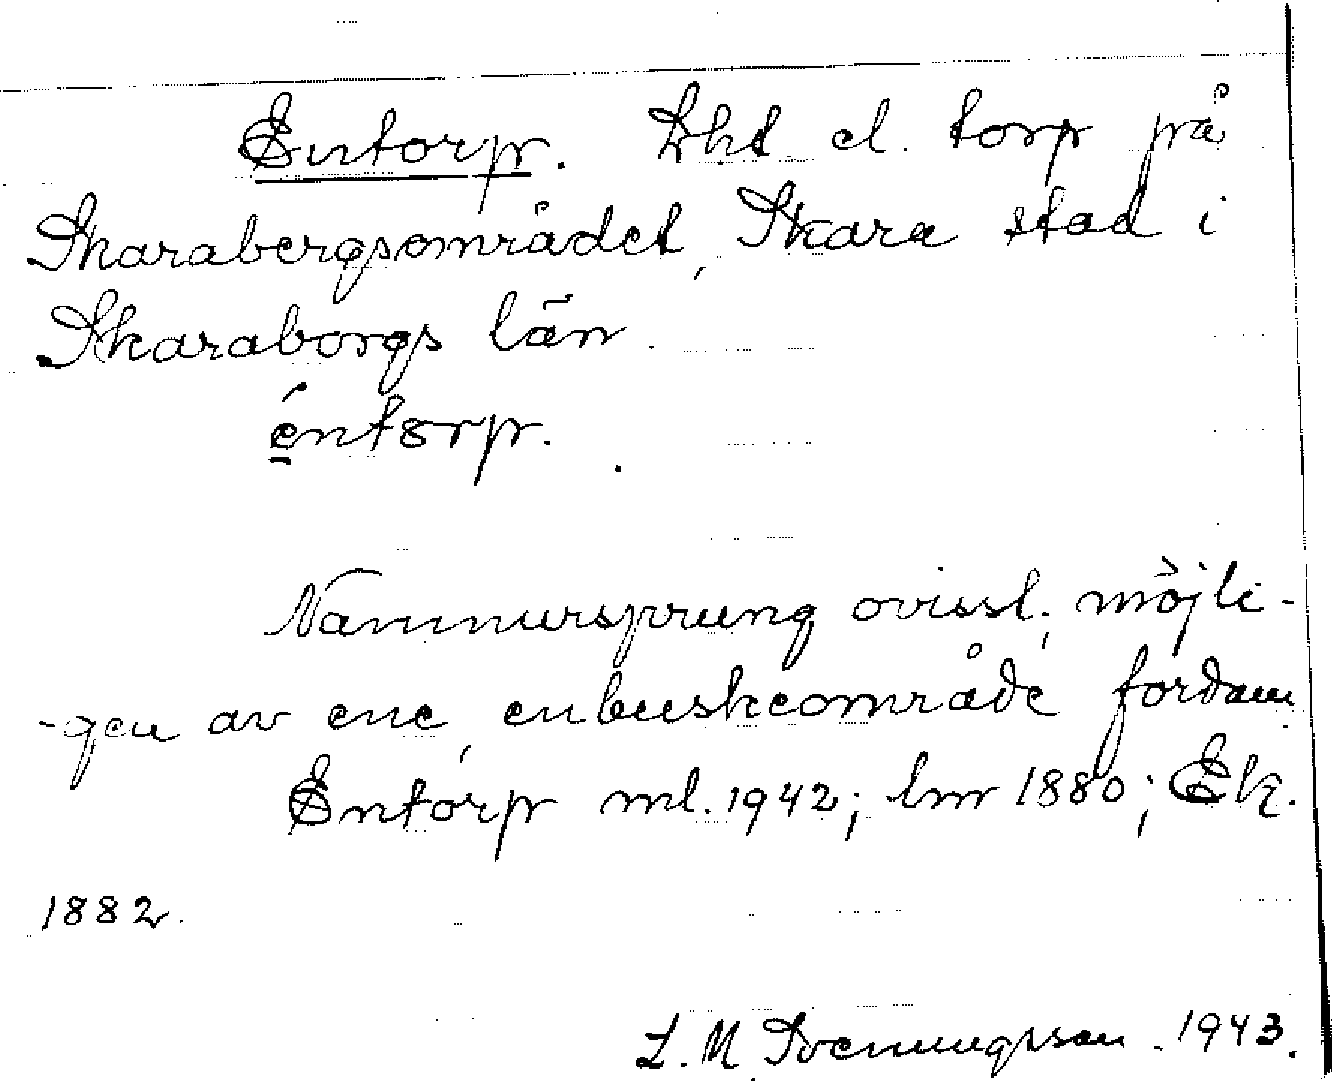 Entorp. Lht el. torp på
Skarabergsområdet, Skara stad i
Skaraborgs län.
éntorp.
Namnursprung ovisst; möjli-
-gen av ene, enbuskeområde fordom
Entorp ml. 1942; lm 1880; Ek.
1882.
L. M. Svenungsson. 1943.